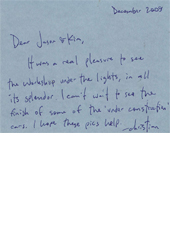 December 2009
Dear Jason & Kim,
It was a real pleasure to see
the workshop under the lights, in all
its splendor. I can't wait to see the
finish of some of the "under construction"
cars. I hope these pics help.